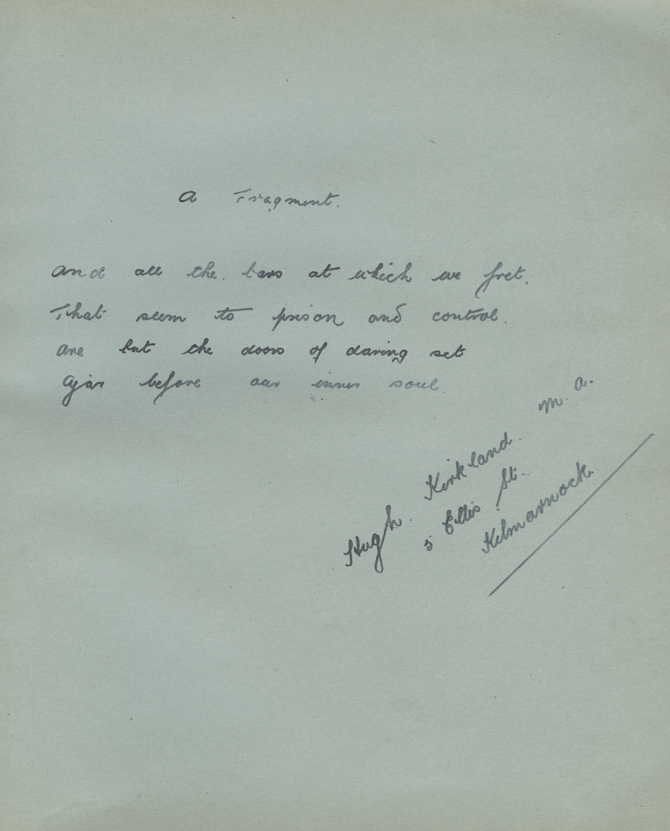 A Fragment.
And all the bars at which we fret.
That seem to prison and control.
Are but the doors of daring set
Ajar before our inner soul.
Hugh Kirkland. M. A.
5 Ellis St.
Kilmarnock.